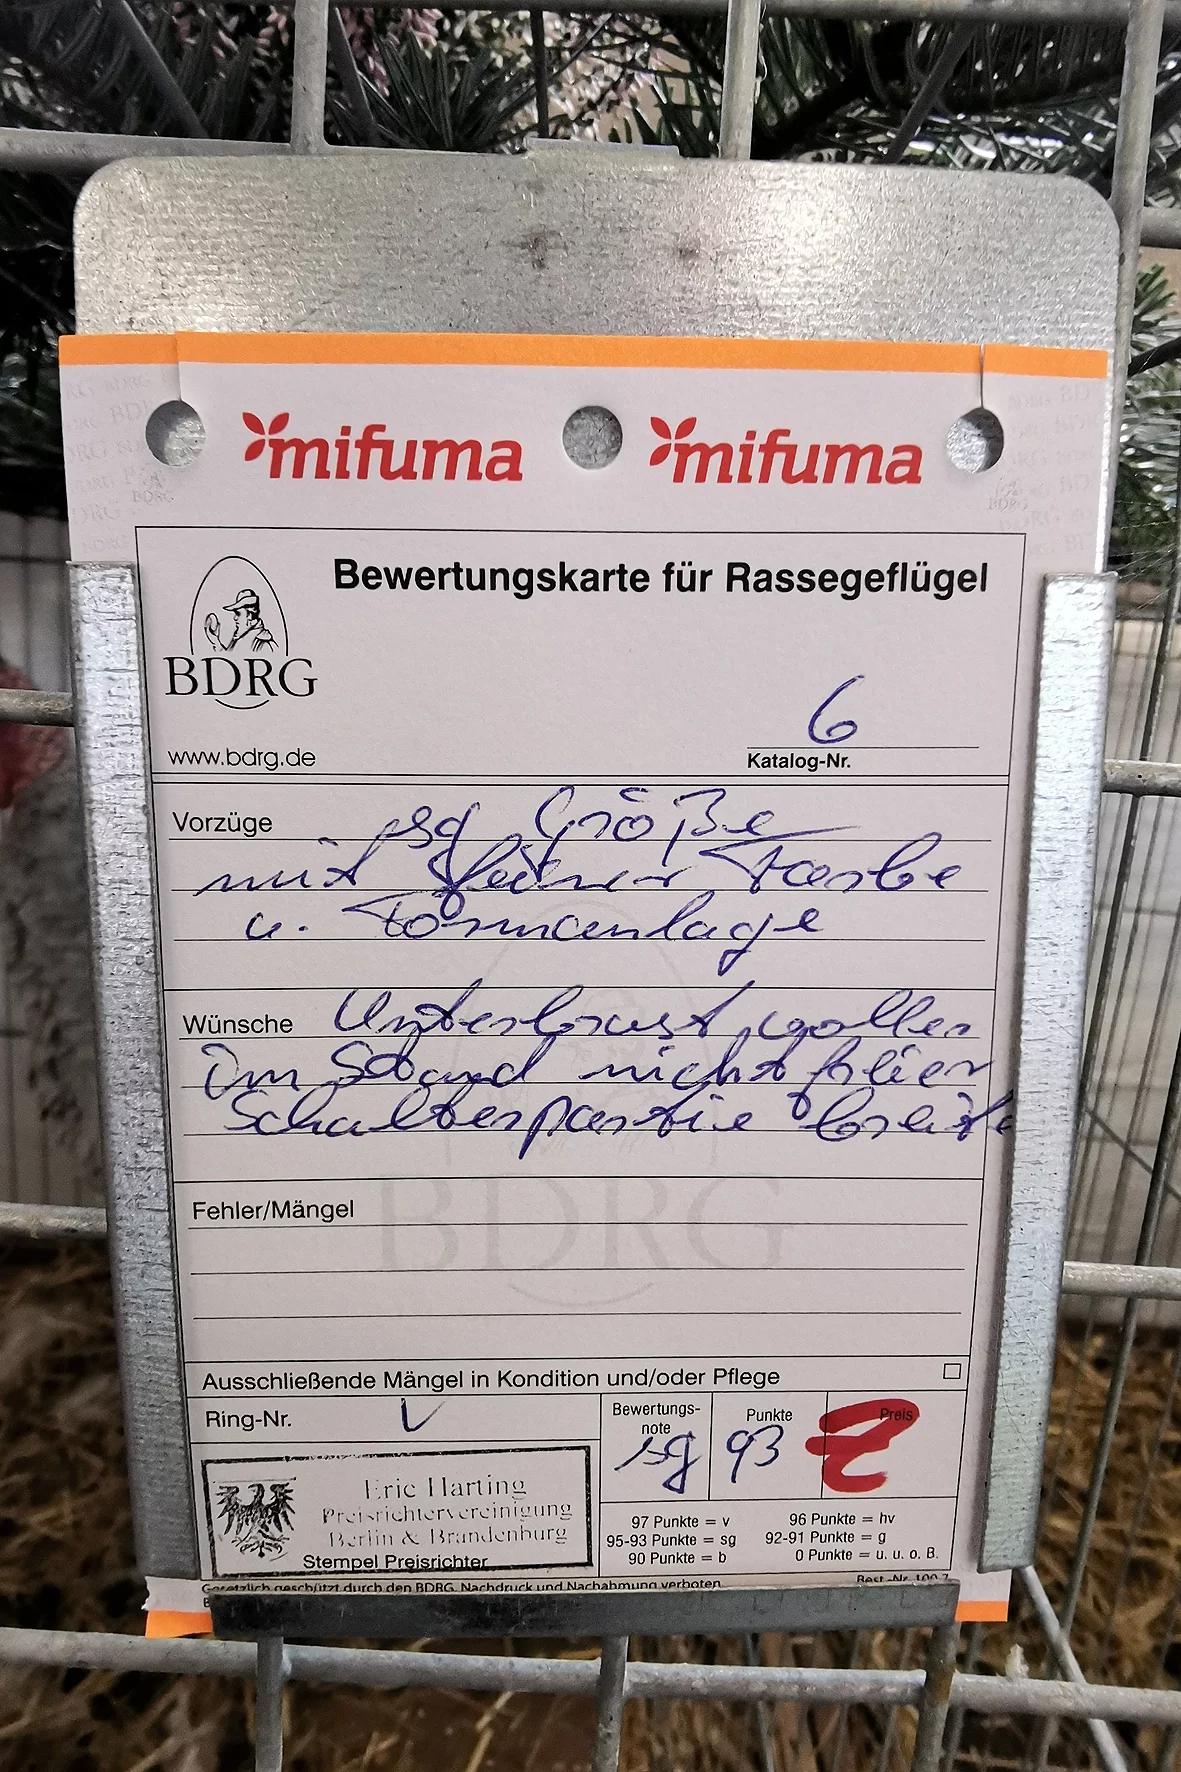 mifuma mifuma
Bewertungskarte für Rassegeflügel
BDRG
www.bdrg.de
6
Katalog-Nr.
Vorzüge sg Größe
mit feiner Farbe
u. Formanlage
Wünsche Unterbrust voller
Im Stand nicht freier
Schulterpartie breite
BDRG
Fehler/Mängel
Ausschließende Mängel in Kondition und/oder Pflege
Ring-Nr.
Bewertungs-
note
sg
Punkte
93
Preis
Eric Harting
Preisrichtervereinigung
Berlin & Brandenburg
Stempel Preisrichter
97 Punkte = v 96 Punkte = hv
95-93 Punkte = sg 92-91 Punkte = g
90 Punkte = b 0 Punkte = u. u. o. B.
Gesetzlich geschützt durch den BDRG. Nachdruck und Nachahmung verboten. Best.-Nr. 100.7